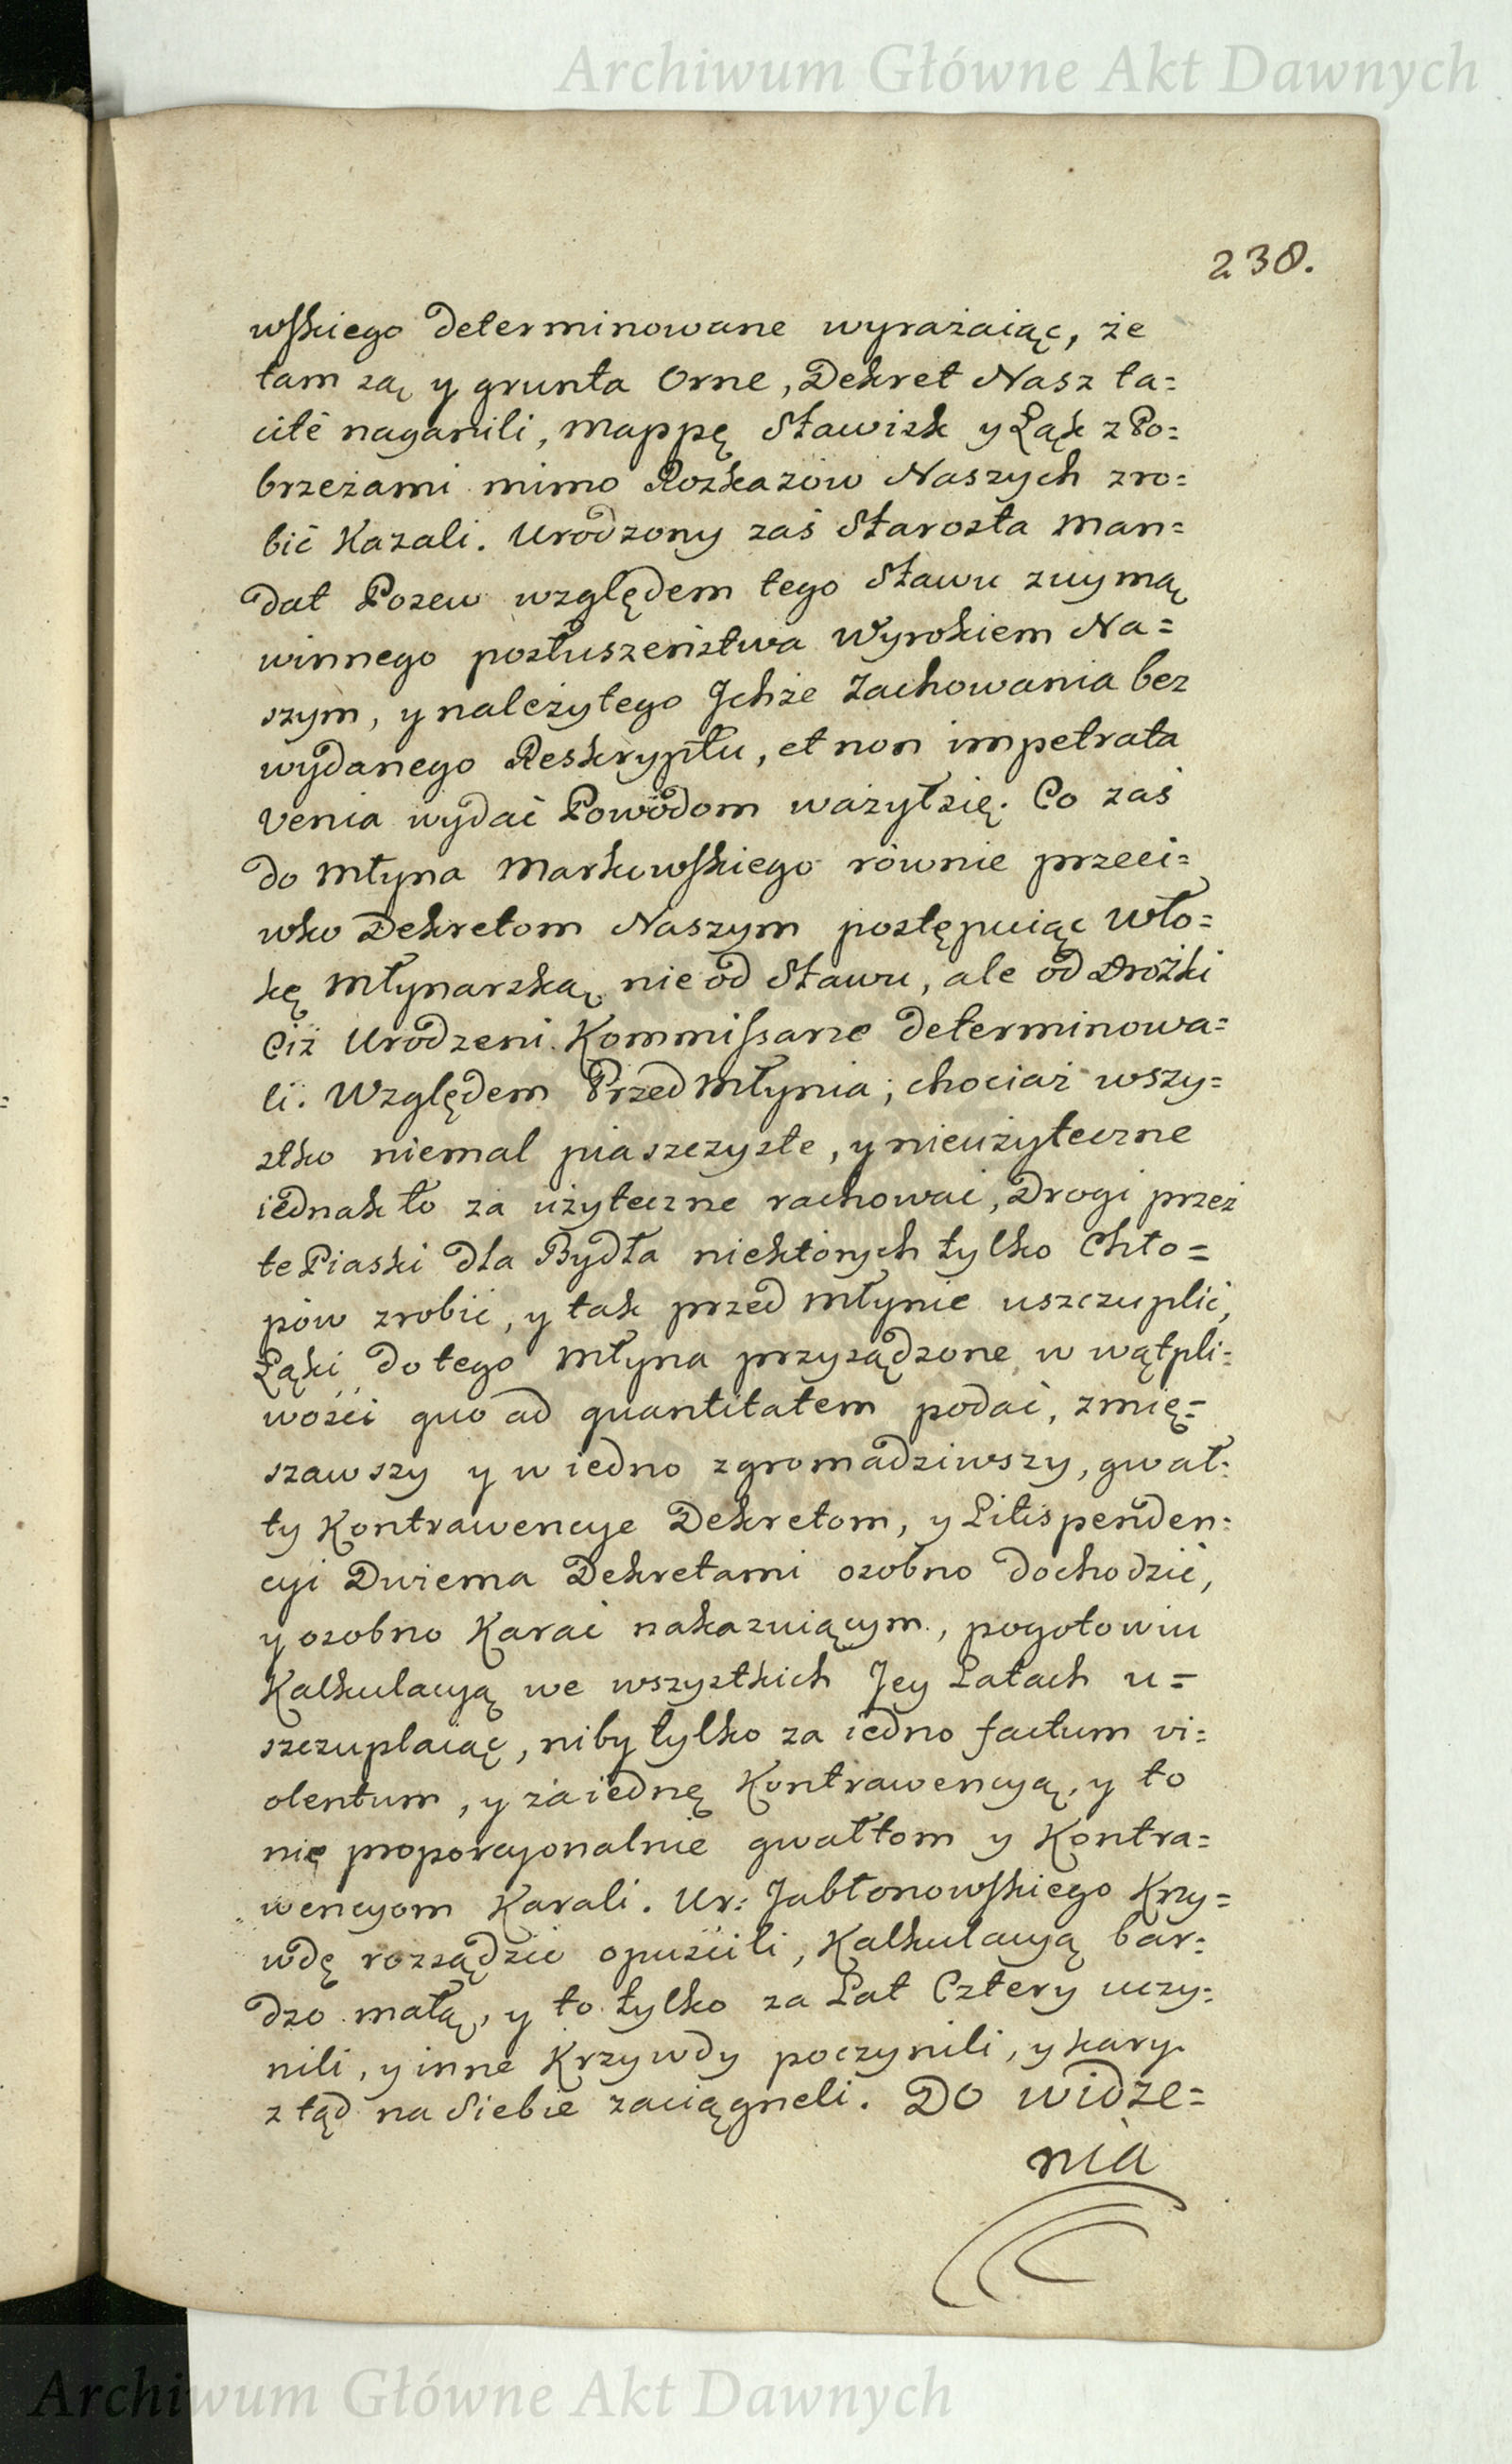 Archiwum Główne Akt Dawnych
238.
wskiego determinowane wyrażaiąc, że
tam są y grunta Orne, Dekret Nasz ta=
citè naganili, Mappę Stawisk y Łąk z Po=
brzeżami mimo Rozkazów Naszych zro=
bić Kazali. Urodzony zaś Starosta Man=
dat Pozew względem tego Stawu z uymą
winnego posłuszeństwa Wyrokiem Na=
szym, y należytego Ichże Zachowania bez
wydanego Reskryptu, et non impetrata
Venia wydać Powodom ważył się. Co zaś
do Młyna Markowskiego równie przeci=
wko Dekretom Naszym postępuiąc Wło=
kę Młynarską nie od Stawu, ale od Drożki
Ciż Urodzeni Kommissarze determinowa=
li. Względem Przed Młynia; chociaż wszy=
stko niemal piaszczyste, y nieużyteczne
iednak to za użyteczne rachować, Drogi przez
te Piaski dla Bydła niektórych tylko Chło=
pów zrobić, y tak przed Młynie uszczuplić,
Łąki do tego Młyna przysądzone w wątpli=
wości quo ad quantitatem podać, zmię=
szawszy y w iedno zgromadziwszy, gwał=
ty Kontrawencye Dekretom, y Litispenden=
cyi Dwiema Dekretami osobno dochodzić,
y osobno Karać nakazuiącym, pogotowiu
Kalkulacyą we wszystkich Jey Latach u=
szczuplaiąc, niby tylko za iedno factum vi=
olentum, y za iednę Kontrawencyą, y to
nie proporcyonalnie gwałtom y Kontra=
wencyom Karali. Ur: Jabłonowskiego Krzy=
wdę rozsądzić opuścili, Kalkulacyą bar=
dzo małą, y to tylko za Lat Cztery uczy=
nili, y inne Krzywdy poczynili, y kary
ztąd na Siebie zaciągneli. Do widze=
nia
Archiwum Główne Akt Dawnych